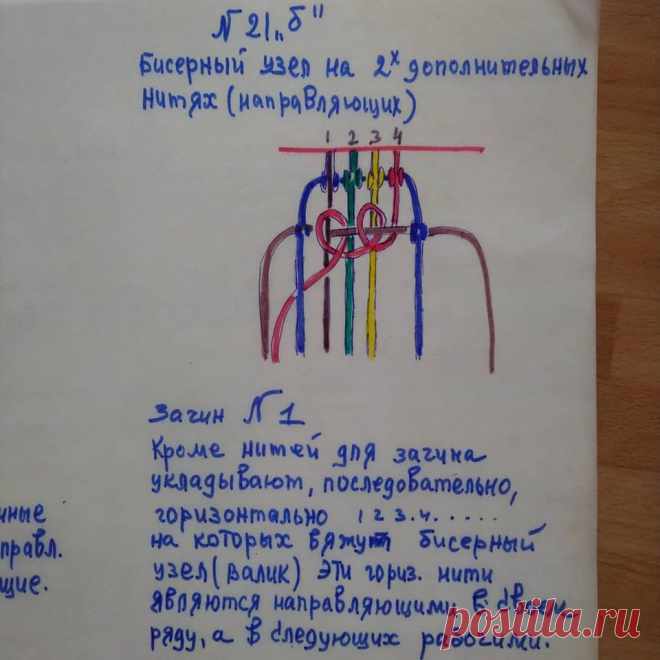 N 21 „б"
Бисерный узел на 2х дополнительных
нитях (направляющих)
1 2 3 4
Зачин N 1
Кроме нитей для зачина
укладывают, последовательно,
горизонтально 1 2 3. 4. . . . . .
на которых вяжут бисерный
узел (валик) Эти гориз. нити
являются направляющими в
ряду, а в следующих рабочими.
нные
правл.
щие.
postila.ru